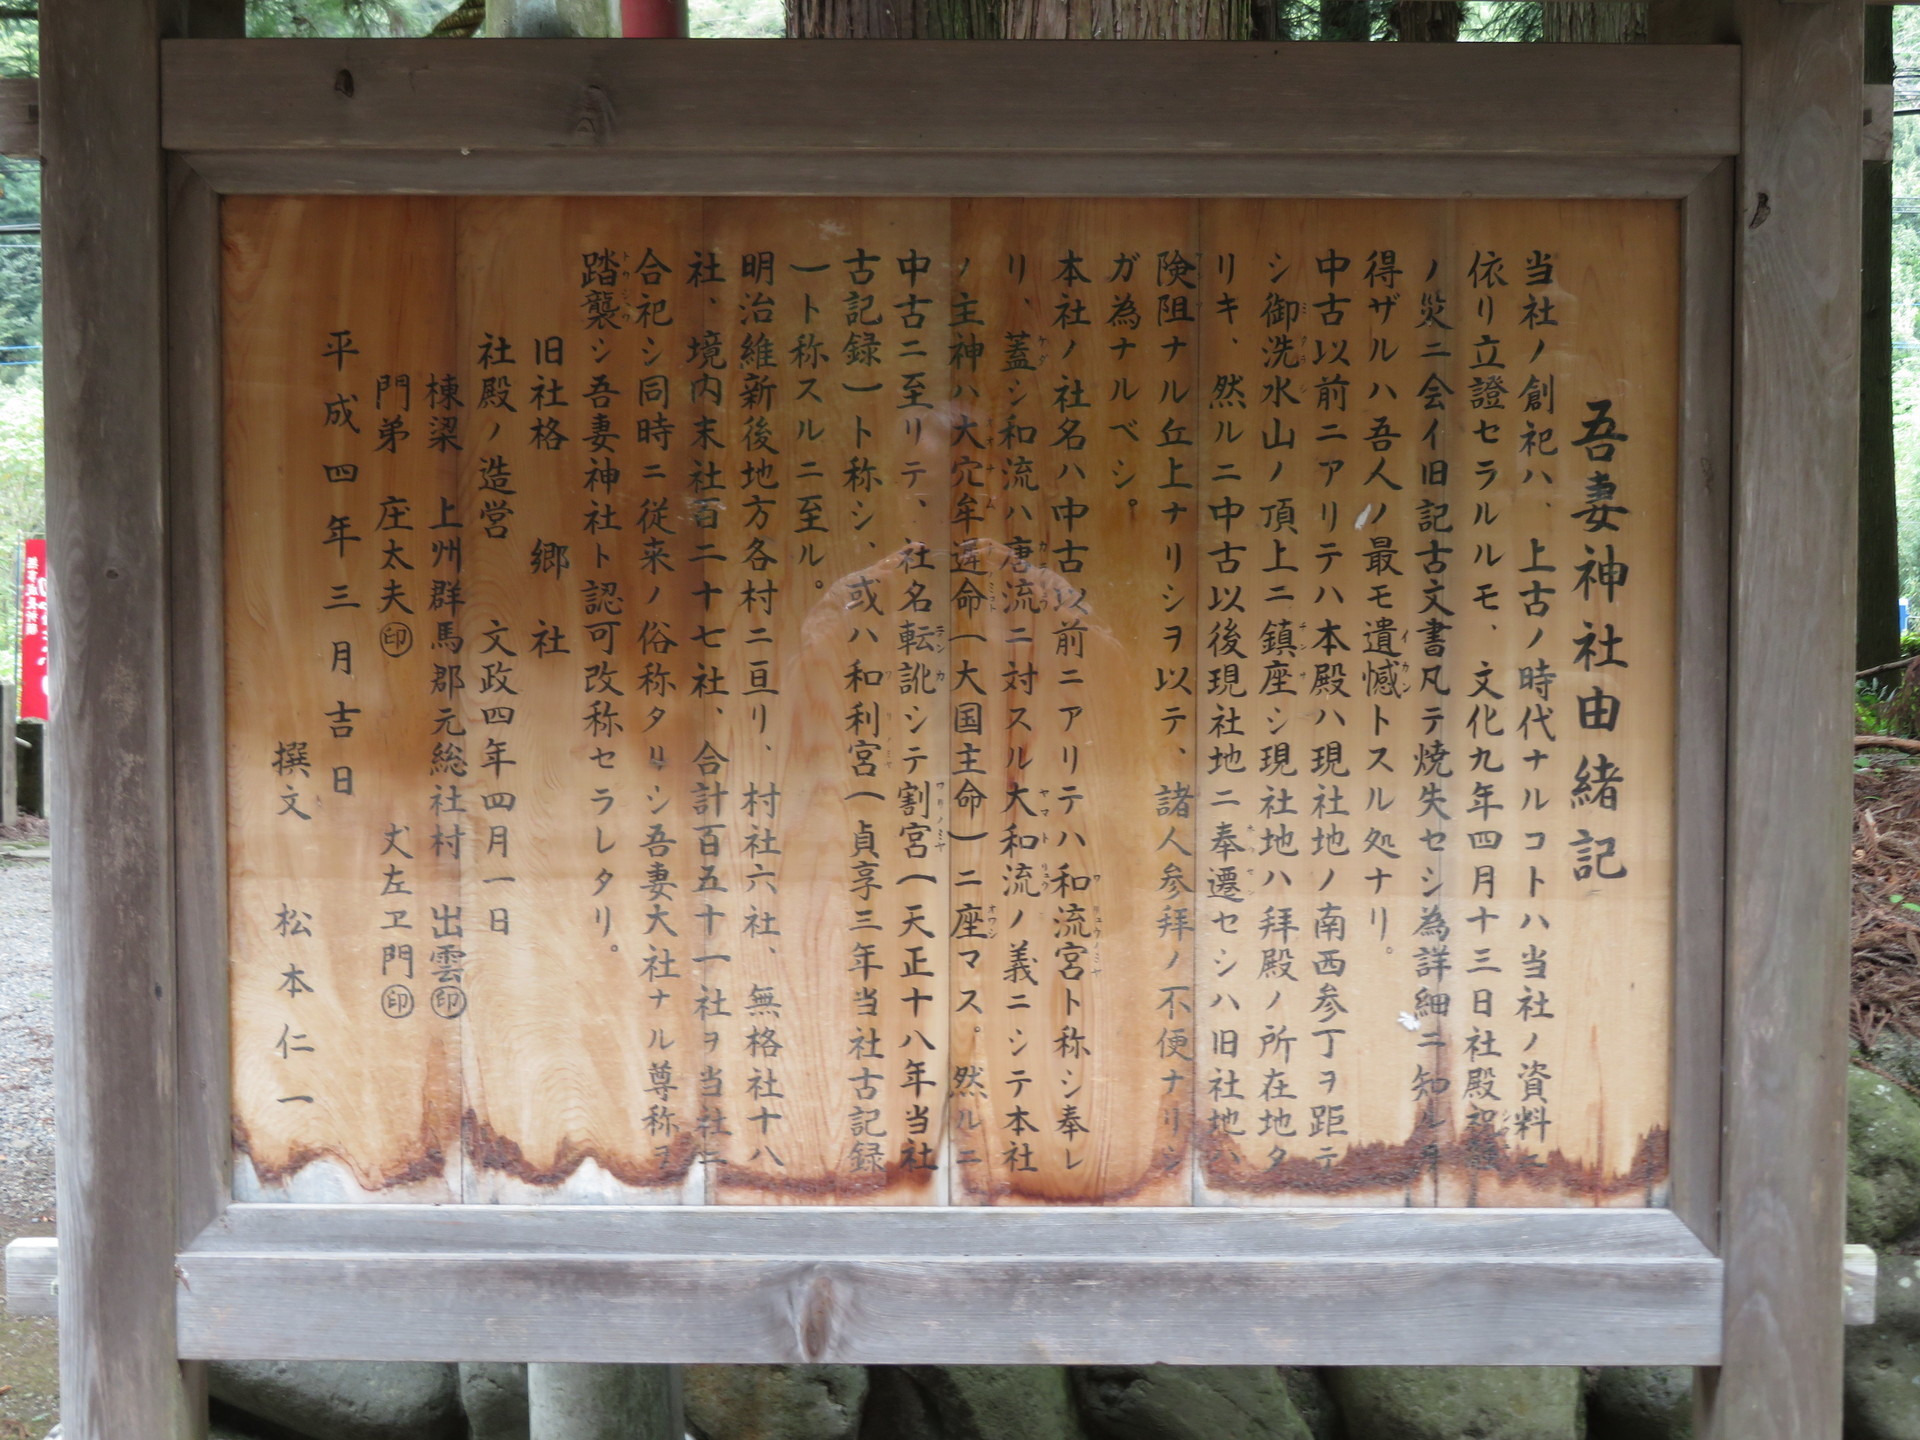 吾妻神社由緒記
当社ノ創祀ハ、上古ノ時代ナルコトハ当社ノ資料ニ
依リ立證セラルルモ、文化九年四月十三日社殿祝融
ノ災ニ会イ旧記古文書凡テ焼失セシ為詳細ニ知ルヲ
得ザルハ吾人ノ最モ遺憾トスル処ナリ。
中古以前ニアリテハ本殿ハ現社地ノ南西参丁ヲ距テ
シ御洗水山ノ頂上ニ鎮座シ現社地ハ拜殿ノ所在地タ
リキ、然ルニ中古以後現社地ニ奉遷セシハ旧社地ハ
険阻ナル丘上ナリシヲ以テ、諸人参拜ノ不便ナリシ
ガ為ナルベシ。
本社ノ社名ハ中古以前ニアリテハ和流宮ト称シ奉レ
リ、蓋シ和流ハ唐流ニ対スル大和流ノ義ニシテ本社
ノ主神ハ大穴牟遅命(大国主命)ニ座マス。然ルニ
中古ニ至リテ、社名転訛シテ割宮(天正十八年当社
古記録)ト称シ、或ハ和利宮(貞享三年当社古記録
)ト称スルニ至ル。
明治維新後地方各村ニ亘リ、村社六社、無格社十八
社、境内末社百二十七社、合計百五十一社ヲ当社ニ
合祀シ同時ニ従来ノ俗称タリシ吾妻大社ナル尊称ヲ
踏襲シ吾妻神社ト認可改称セラレタリ。
旧社格 郷社
社殿ノ造営 文政四年四月一日
棟梁 上州群馬郡元総社村 出雲㊞
門弟 庄太夫㊞ 丈左ヱ門㊞
平成四年三月吉日
撰文 松本仁一